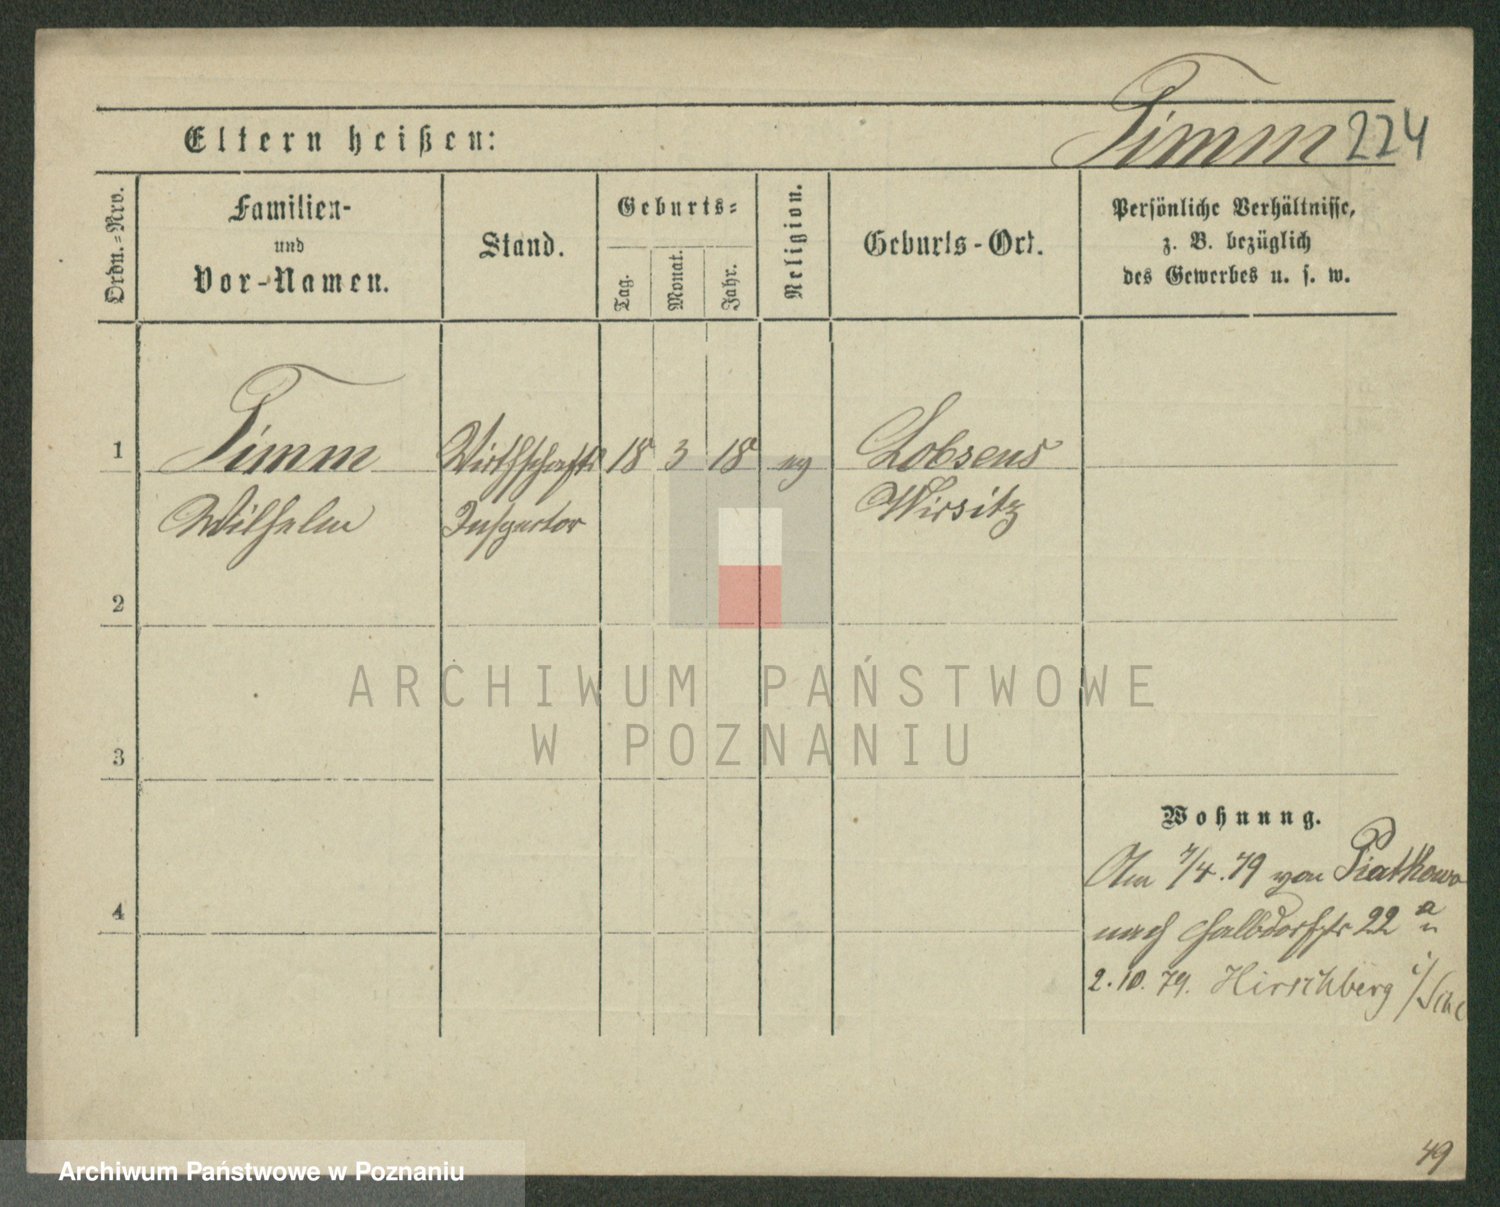 Timm 224
Eltern heißen:
Ordn.-Nro.
Familien-
und
Vor-Namen.
Stand.
Geburts-
Tag.
Monat.
Jahr.
Religion.
Geburts-Ort.
Persönliche Verhältnisse,
z. B. bezüglich
des Gewerbes u. s. w.
1 Timm Wirthschafts 18 3 18 ev Lobsens
Wilhelm Inspector Wirsitz
2
3
ARCHIWUM PAŃSTWOWE
W POZNANIU
Wohnung.
Am 7/4.79 von Piatkowo
4
nach Halbdorfstr 22 a
2.10.79. Hirschberg i/Schl
49
Archiwum Państwowe w Poznaniu